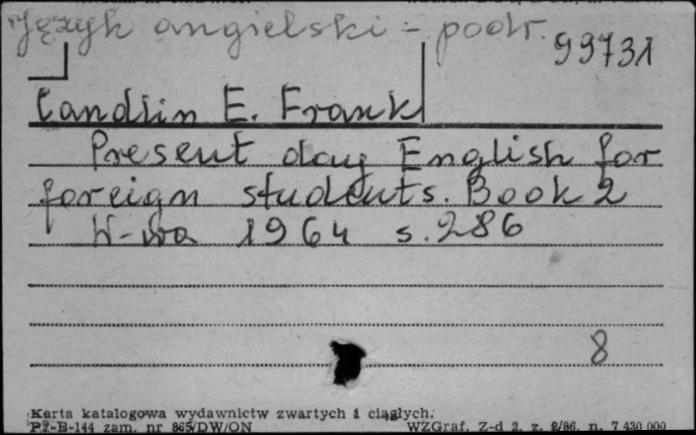 Język angielski - podr.
99731
Candlin E. Frank
Present day English for
foreign students. Book 2
W-wa 1964 s. 286
8
Karta katalogowa wydawnictw zwartych i ciągłych.
Pż-B-144 zam. nr 865/DW/ON WZGraf. Z-d 2, z. 2/86, n. 7 430 000